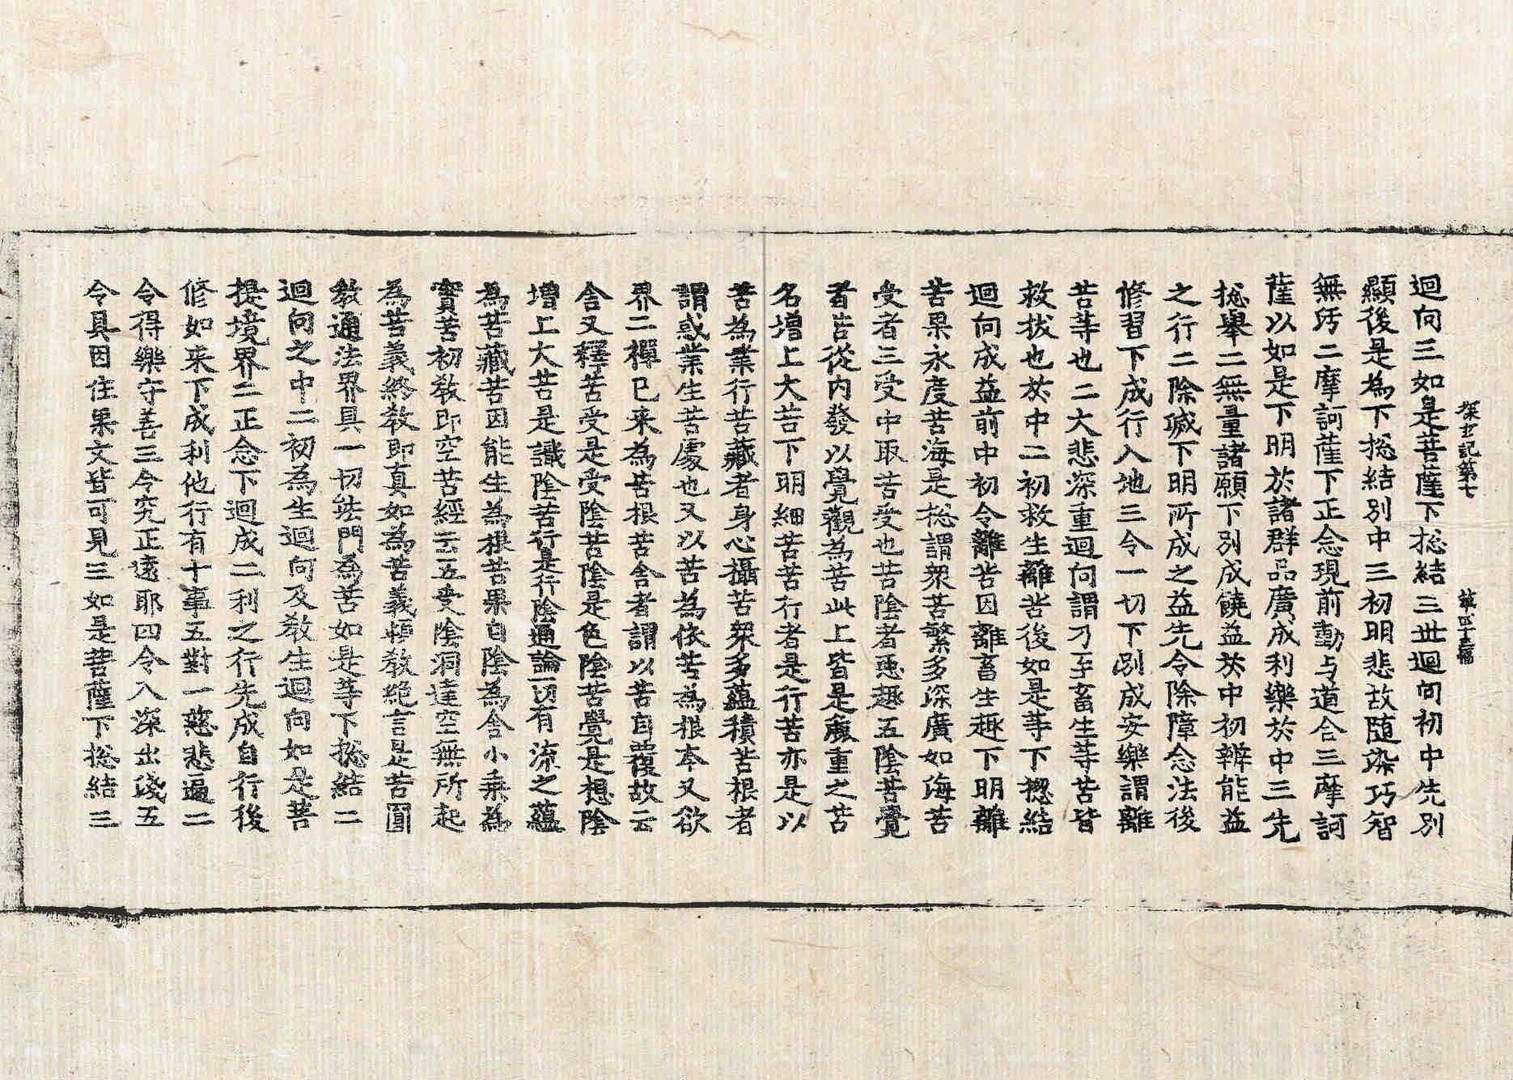 探玄記第七 第四十三幅
迴向三如是菩薩下捴結三世迴向初中先別
顯後是為下捴結別中三初明悲故随染巧智
無巧二摩訶薩下正念現前動与道合三摩訶
薩以如是下明於諸群品廣成利樂於中三先
捴舉二無量諸願下別成饒益於中初辨能益
之行二除滅下明所成之益先令除障念法後
修習下成行入地三令一切下別成安樂謂離
苦等也二大悲深重迴向謂乃至畜生等苦皆
救拔也於中二初救生離苦後如是等下揔結
迴向成益前中初令離苦因離畜生趣下明離
苦果永度苦海是捴謂衆苦繁多深廣如海苦
受者三受中取苦受也苦陰者惡趣五陰苦覺
者苦從内發以覺觀為苦此上皆是麁重之苦
名增上大苦下明細苦苦行者是行苦亦是以
苦為業行苦藏者身心攝苦衆多蘊積苦根者
謂惑業生苦處也又以苦為依苦為根本又欲
界二禪已来為苦根苦舍者謂以苦自覆故云
舍又釋苦受是受陰苦陰是色陰苦覺是想陰
增上大苦是識陰苦行是行陰通論一切有流之蘊
為苦藏苦因能生為根苦果自陰為舍小乘為
實苦初教即空苦經云五受陰洞達空無所起
為苦義終教即真如為苦義頓教絶言是苦圓
教通法界具一切法門為苦如是等下捴結二
迴向之中二初為生迴向及救生迴向如是菩
提境界二正念下迴成二利之行先成自行後
修如来下成利他行有十事五對一慈悲遍二
令得樂守善三令究正遠耶四令入深出淺五
令具因住果文皆可見三如是菩薩下捴結三